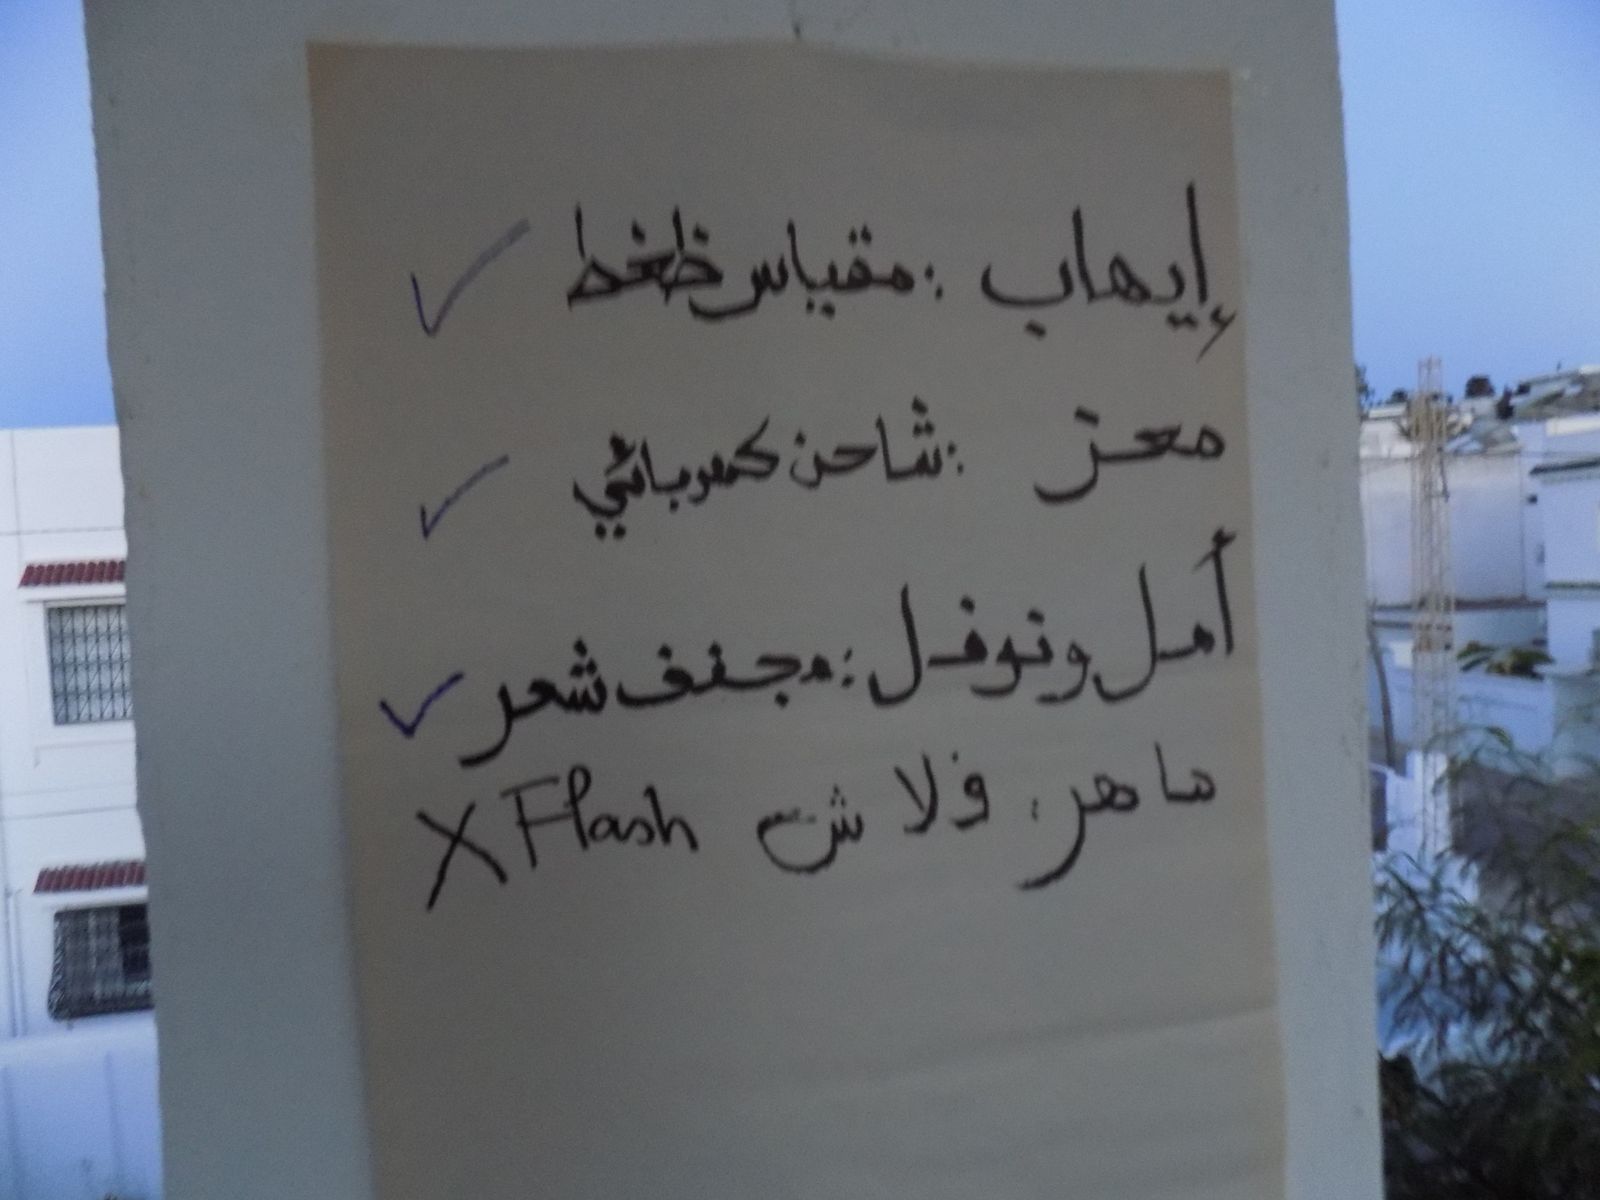 إيهاب : مقياس ظغط ✓
معز : شاحن كهربائي ✓
أمل ونوفل : مجفف شعر ✓
ماهر : فلاش Flash X